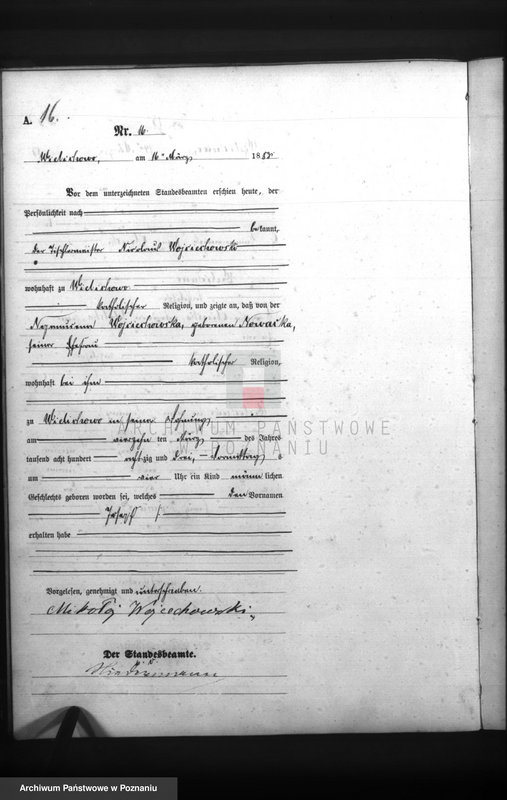 A. 16.
Nr. 16.
Wielichowo, am 16 ten März 1883
Vor dem unterzeichneten Standesbeamten erschien heute, der
Persönlichkeit nach
bekannt,
der Tischlermeister Nicolaus Wojciechowski
wohnhaft zu Wielichowo
katholischer Religion, und zeigte an, daß von der
Nepomucena Wojciechowska, geborenen Nowaćka,
seiner Ehefrau
katholischer Religion,
wohnhaft bei ihm
zu Wielichowo in seiner Wohnung
am vierzehn ten März des Jahres
tausend acht hundert acht zig und drei, Vormittags
um vier Uhr ein Kind männlichen
Geschlechts geboren worden sei, welches den Vornamen
Joseph
erhalten habe
Vorgelesen, genehmigt und unterschrieben.
Mikołaj Wojcechowski
Der Standesbeamte.
ARCHIWUM PAŃSTWOWE
W POZNANIU
Archiwum Państwowe w Poznaniu